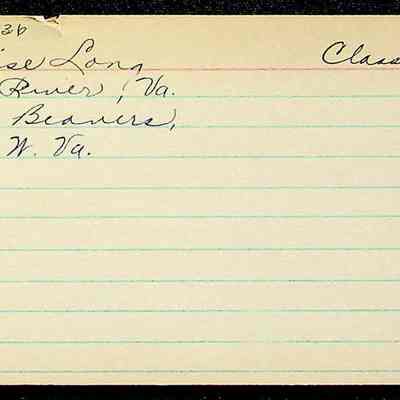 36
ise Long Class
River, Va.
Beavers,
W. Va.